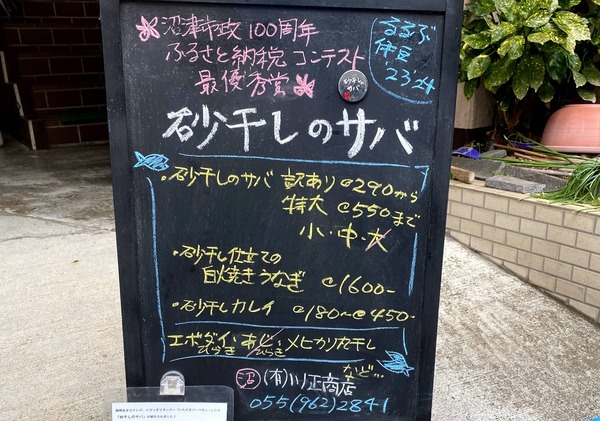 沼津市政100周年
ふるさと納税コンテスト
最優秀賞
るるぶ
伊豆
'23'24
砂干しの
サバ
砂干しのサバ
・砂干しのサバ 訳あり@290から
特大@550まで
小・中・大
・砂干し仕立ての
白焼きうなぎ @1600-
・砂干しカレイ @180〜@450-
エボダイ・あじ・メヒカリ丸干し
びらき びらき
など…
沼 (有)川正商店
055(962)2841
「砂干しのサバ」が紹介されました!